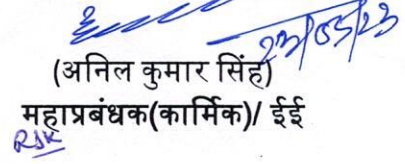 23/05/23
(अनिल कुमार सिंह)
महाप्रबंधक(कार्मिक)/ ईई
RSK